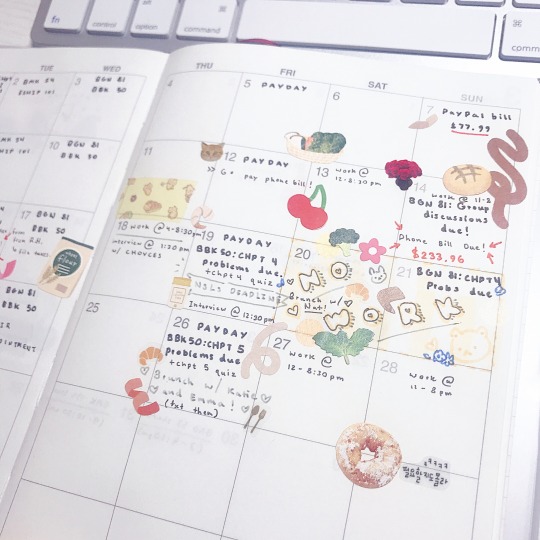 fn
control
option
command
TUE
WED
THU
FRI
SAT
SUN
3
BGN 81
BBK 50
4
5
PAYDAY
6
7
PayPal bill
$77.99
10
BGN 81
BBK 50
11
12
PAYDAY
pay phone bill!
13
work @
12-8:30pm
14
work @ 11-8
BGN 81: Group
discussions
due!
Phone Bill Due!
$233.96
17
BGN 81
BBK 50
flour
18
work @ 4-8:30pm
interview @ 1:30pm
w/ CHOYCES
19
PAYDAY
BBK50: CHPT 4
Problems due
+chpt 4 quiz
NSLS DEADLINE
Interview @ 12:30pm
20
NO
Brunch w/
Nat!
WORK
21
BGN 81: CHPT4
Probs due
BGN 81
BBK 50
25
26
PAYDAY
BBK50: CHPT 5
Problems due
+chpt 5 quiz
Brunch w/ Katie
and Emma!
(txt them)
27
work @
12-8:30pm
28
work @
11-8pm